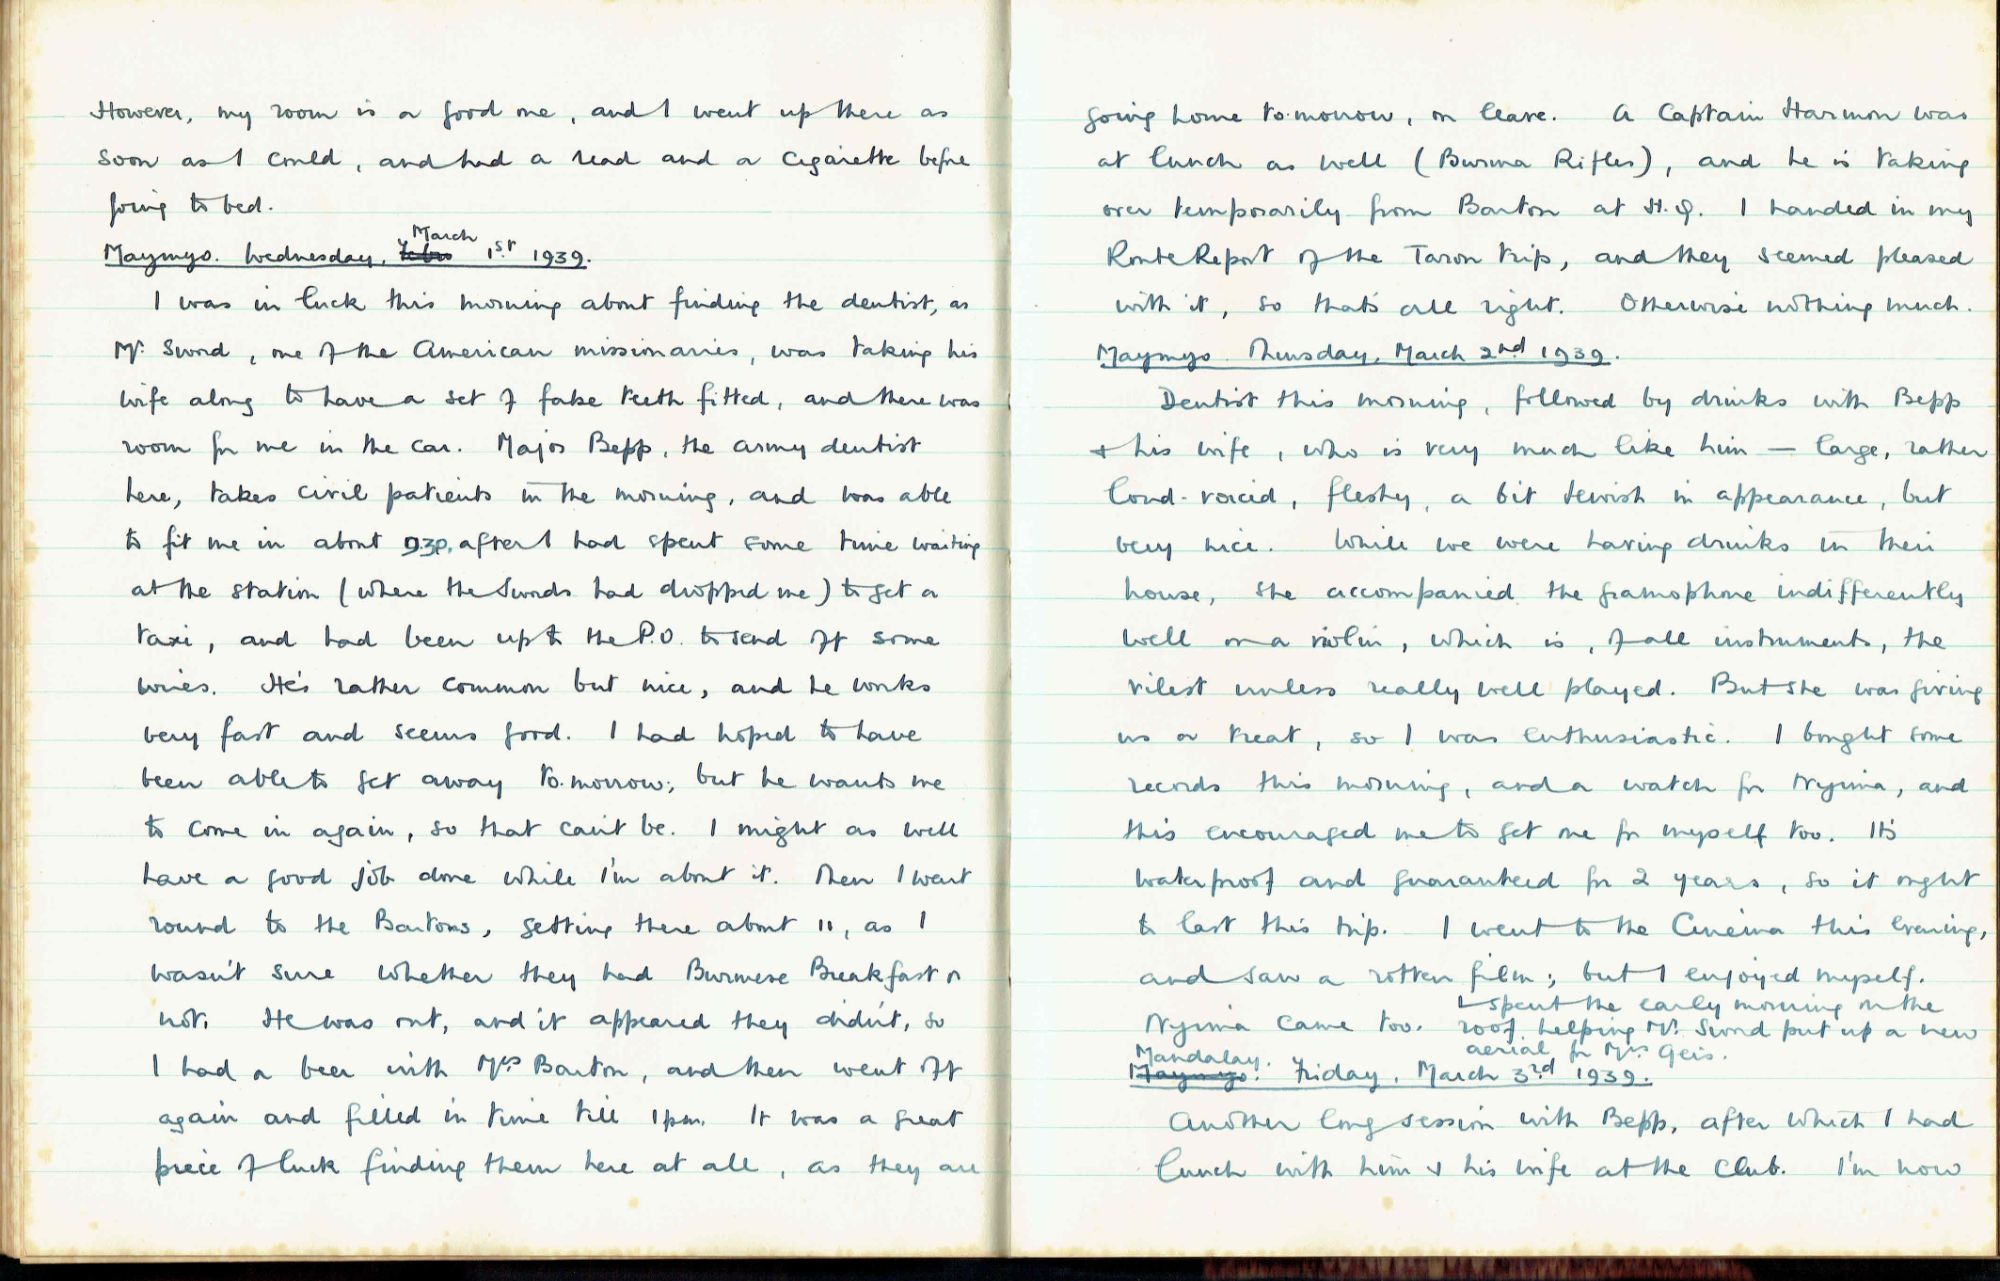 However, my room is a good one, and I went up there as
soon as I could, and had a read and a cigarette before
going to bed.
March
Maymyo. Wednesday, Febr 1st 1939.
I was in luck this morning about finding the dentist, as
Mr. Sword, one of the American missionaries, was taking his
wife along to have a set of false teeth fitted, and there was
room for me in the car. Major Bepp, the army dentist
here, takes civil patients in the morning, and was able
to fit me in about 9.30, after I had spent some time waiting
at the station (where the Swords had dropped me) to get a
taxi, and had been up to the P.O. to send off some
wires. He's rather common but nice, and he works
very fast and seems good. I had hoped to have
been able to get away to-morrow; but he wants me
to come in again, so that can't be. I might as well
have a good job done while I'm about it. Then I went
round to the Bartons, getting there about 11, as I
wasn't sure whether they had Burmese Breakfast or
not. He was out, and it appeared they didn't, so
I had a beer with Mrs Barton, and then went off
again and filled in time till 1pm. It was a great
piece of luck finding them here at all, as they are
going home to-morrow, on leave. A Captain Harmon was
at lunch as well (Burma Rifles), and he is taking
over temporarily from Barton at H.Q. I handed in my
Route Report of the Taron trip, and they seemed pleased
with it, so that's all right. Otherwise nothing much.
Maymyo. Thursday, March 2nd 1939.
Dentist this morning, followed by drinks with Bepp
& his wife, who is very much like him — large, rather
loud-voiced, fleshy, a bit Jewish in appearance, but
very nice. While we were having drinks in their
house, she accompanied the gramophone indifferently
well on a violin, which is, of all instruments, the
vilest unless really well played. But she was giving
us a treat, so I was enthusiastic. I bought some
records this morning, and a watch for Nyima, and
this encouraged me to get one for myself too. It's
waterproof and guaranteed for 2 years, so it ought
to last this trip. I went to the Cinema this evening,
and saw a rotten film; but I enjoyed myself.
Nyima came too. I spent the early morning on the
roof, helping Mr. Sword put up a new
aerial for Mrs Geis.
Mandalay.
Maymyo. Friday, March 3rd 1939.
Another long session with Bepp, after which I had
lunch with him & his wife at the Club. I'm now